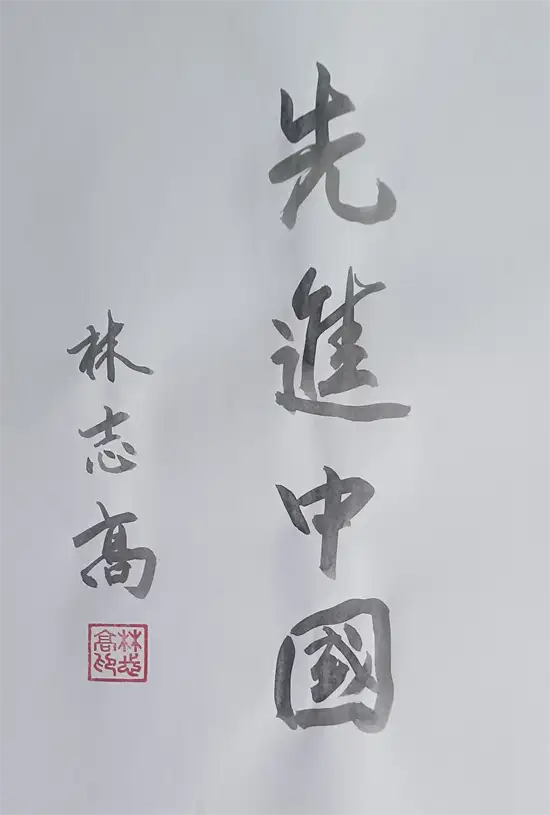 先進中國
林志高
林志高印